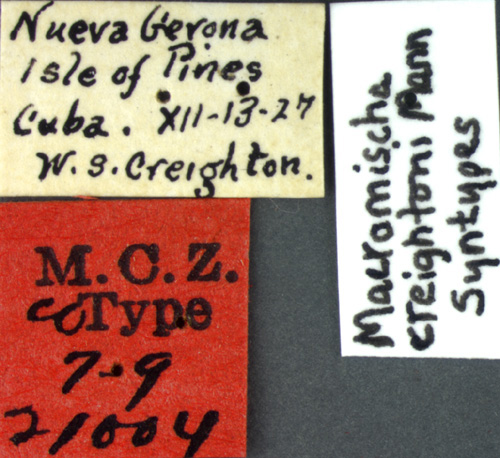 Nueva Gerona
Isle of Pines
Cuba. XII-13-27
W.S. Creighton.
M.C.Z.
coType
7-9
21004
Macromischa
creightoni Mann
Syntypes